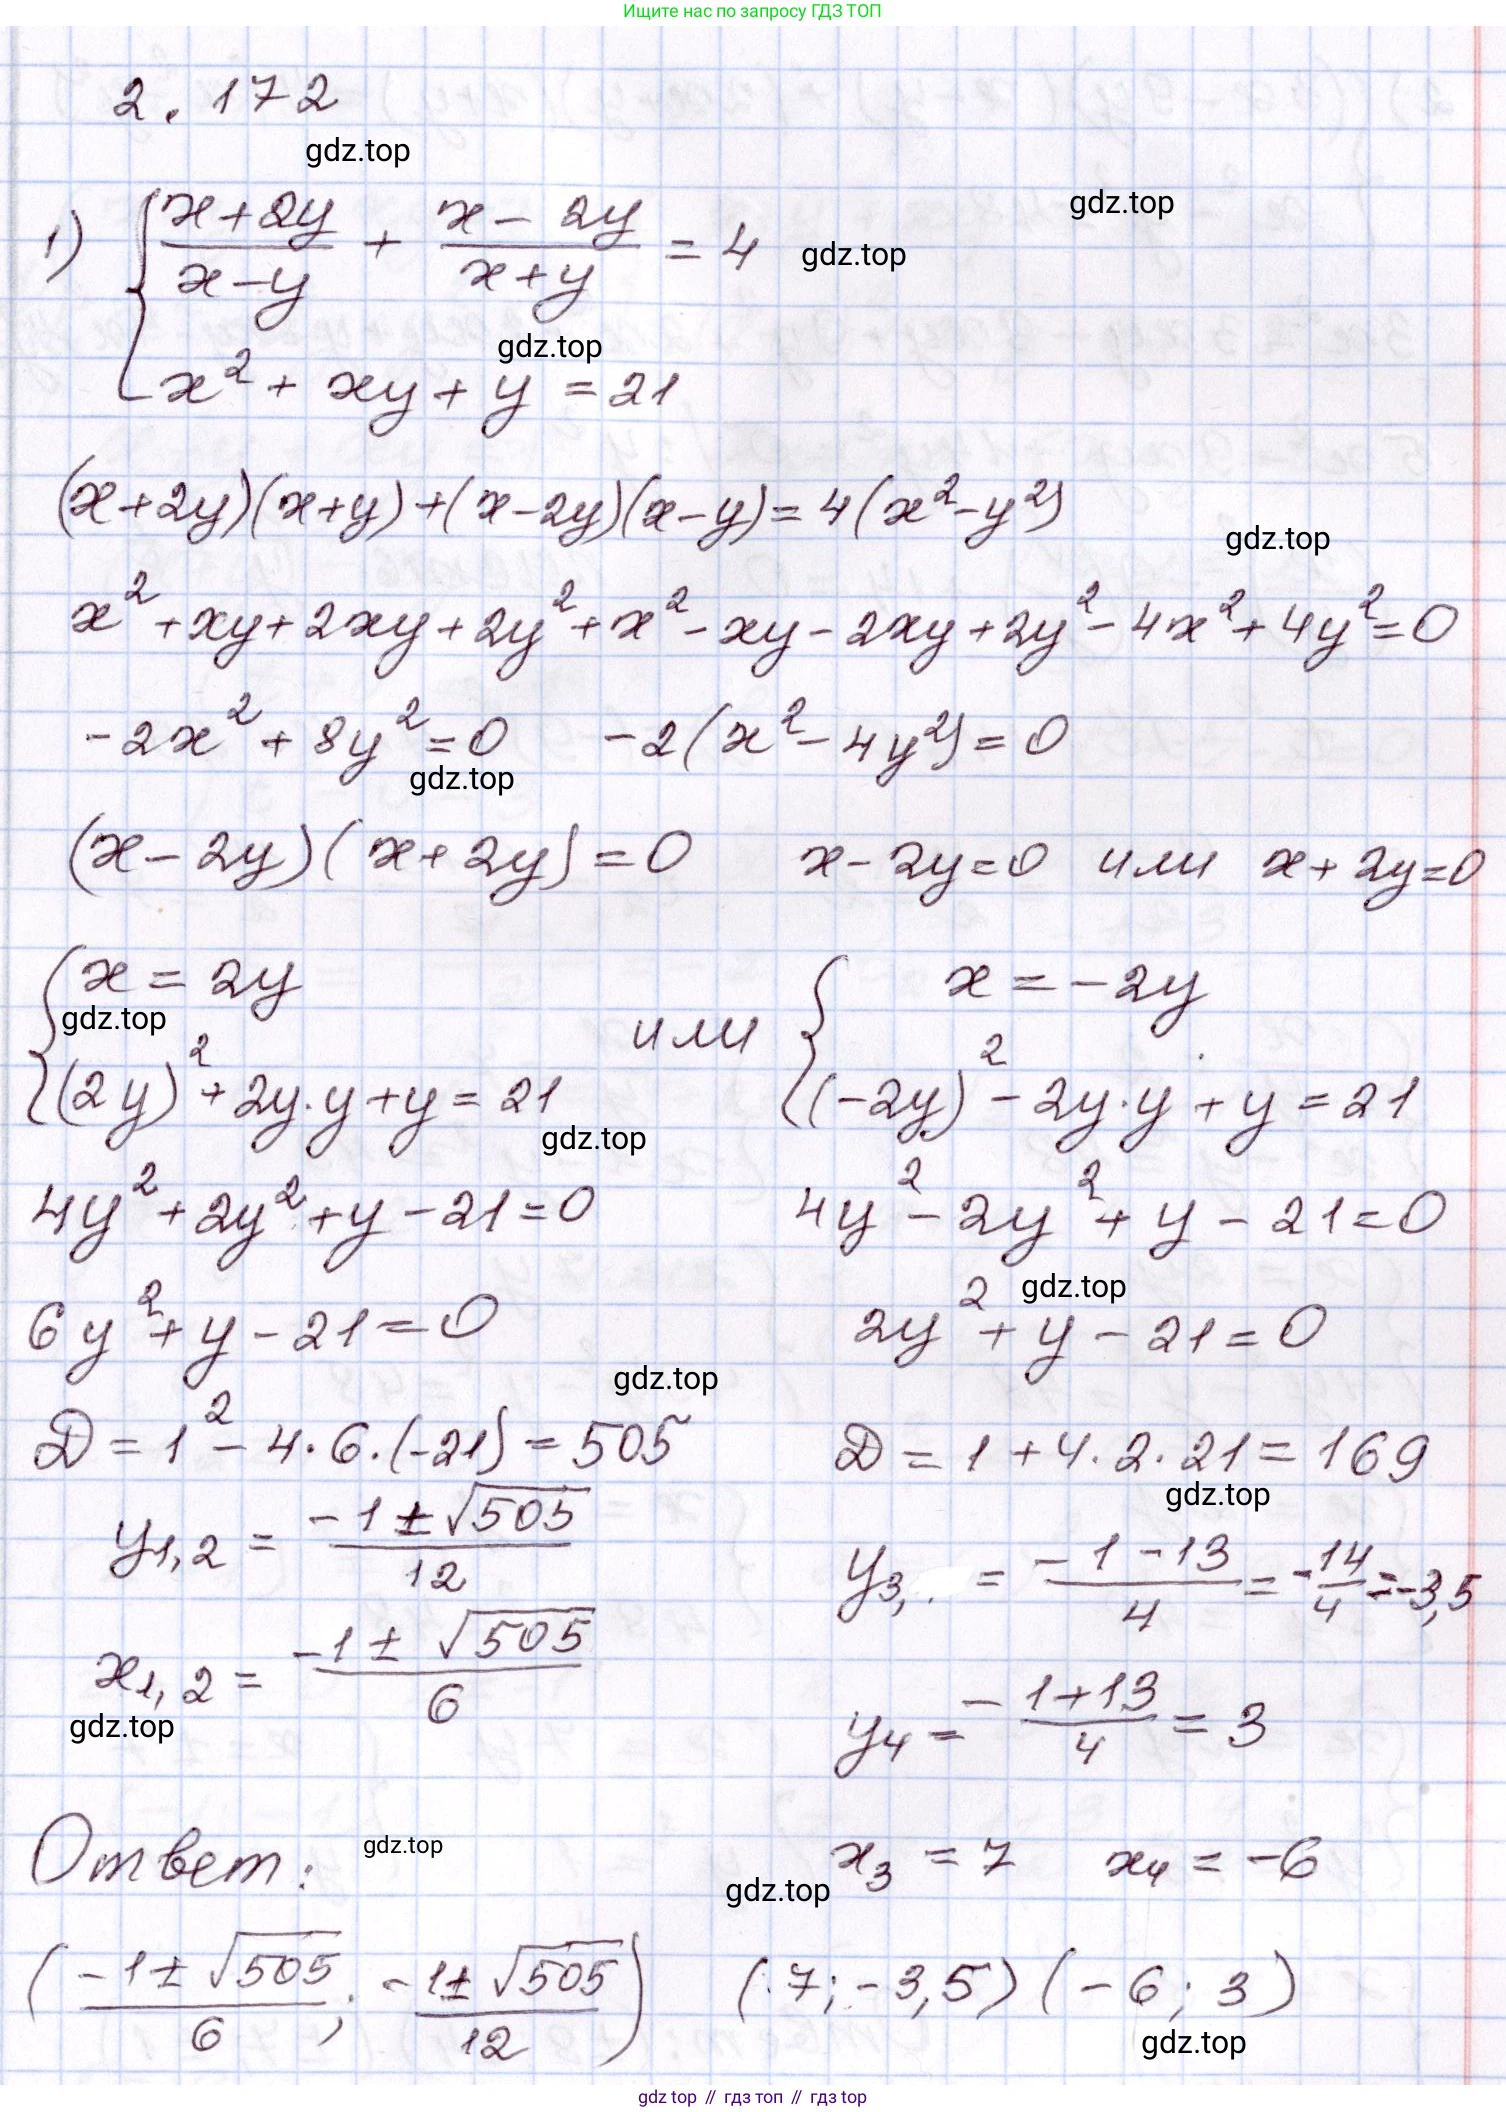 Ищите нас по запросу ГДЗ ТОП
2.172
gdz.top
gdz.top
1) { (x+2y)/(x-y) + (x-2y)/(x+y) = 4
gdz.top
gdz.top
x² + xy + y = 21
(x+2y)(x+y)+(x-2y)(x-y)=4(x²-y²)
gdz.top
x²+xy+2xy+2y²+x²-xy-2xy+2y²-4x²+4y²=0
-2x²+8y²=0 -2(x²-4y²)=0
gdz.top
(x-2y)(x+2y)=0 x-2y=0 или x+2y=0
{ x=2y или { x=-2y
gdz.top
(2y)²+2y·y+y=21 (-2y)²-2y·y+y=21
gdz.top
4y²+2y²+y-21=0 4y²-2y²+y-21=0
gdz.top
6y²+y-21=0 2y²+y-21=0
gdz.top
D=1²-4·6·(-21)=505 D=1+4·2·21=169
gdz.top
y₁,₂ = (-1±√505)/12 y₃, = (-1-13)/4 = -14/4 = -3,5
x₁,₂ = (-1±√505)/6 y₄ = (-1+13)/4 = 3
gdz.top
Ответ: x₃=7 x₄=-6
gdz.top
gdz.top
((-1±√505)/6; (-1±√505)/12) (7;-3,5) (-6;3)
gdz.top
gdz top // гдз топ // гдз top